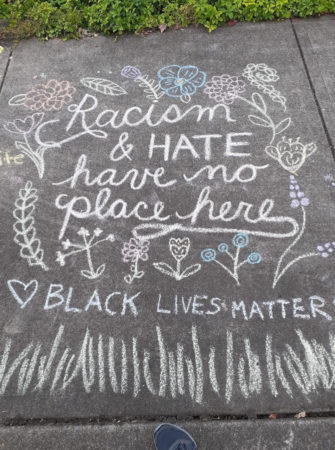 Racism
& HATE
have no
place here
BLACK LIVES MATTER